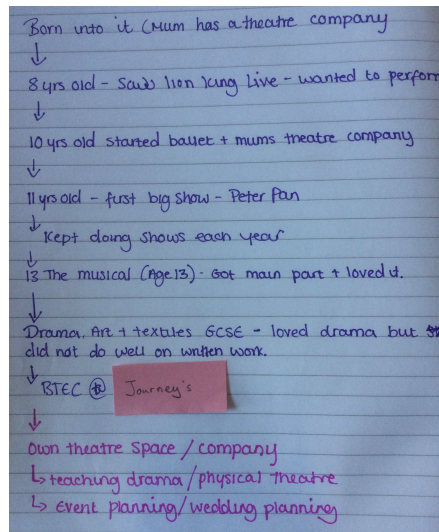 Born into it (Mum has a theatre company
↓
8 yrs old - Saw lion king Live - wanted to perform
↓
10 yrs old started ballet + mums theatre company
↓
11 yrs old - first big show - Peter Pan
↓ Kept doing shows each year
↓
13 The musical (Age 13) - Got main part + loved it.
↓
Drama, Art + textiles GCSE - loved drama but
did not do well on written work.
↓ BTEC
Journey's
↓
Own theatre space / company
↳ teaching drama/physical theatre
↳ Event planning/wedding planning